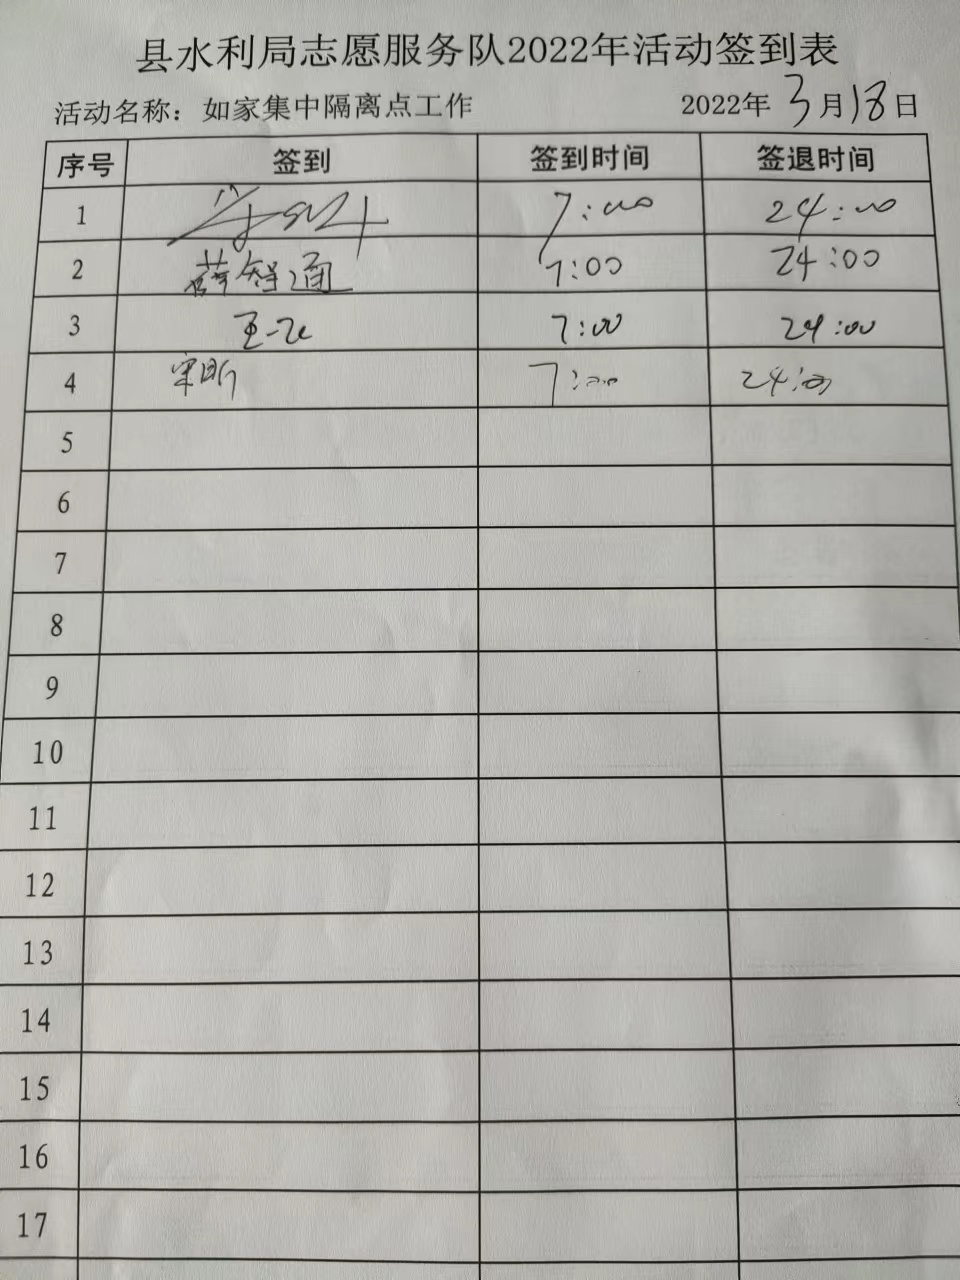 县水利局志愿服务队2022年活动签到表
活动名称：如家集中隔离点工作 2022年 3月18日
序号 签到 签到时间 签退时间
1 7:00 24:00
2 薛智通 7:00 24:00
3 王一飞 7:00 24:00
4 宋昕 7:00 24:00
5
6
7
8
9
10
11
12
13
14
15
16
17